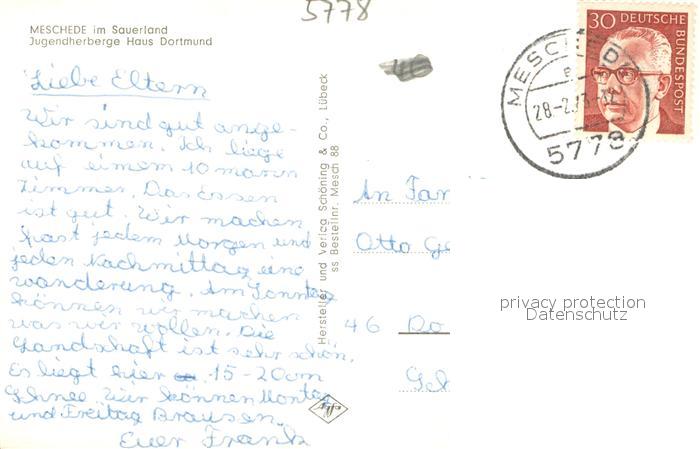 5778
MESCHEDE im Sauerland
Jugendherberge Haus Dortmund
30 DEUTSCHE BUNDESPOST
MESCHEDE
28-2.73
5778
Liebe Eltern
Wir sind gut ange-
kommen. Ich liege
auf einem 10 mann
Zimmer. Das Essen
ist gut. Wir machen
fast jedem Morgen und
jeden Nachmittag eine
wanderung. Am Sonntag
können wir machen
was wir wollen. Die
Landschaft ist sehr schön.
Es liegt hier 15-20cm
Schnee. Wir können Montag
und Freitag Brausen.
Euer Frank
Hersteller und Verlag Schöning & Co., Lübeck
ss Bestellnr. Mesch 88
An Fam
Otto Ge
46 Do
privacy protection
Datenschutz